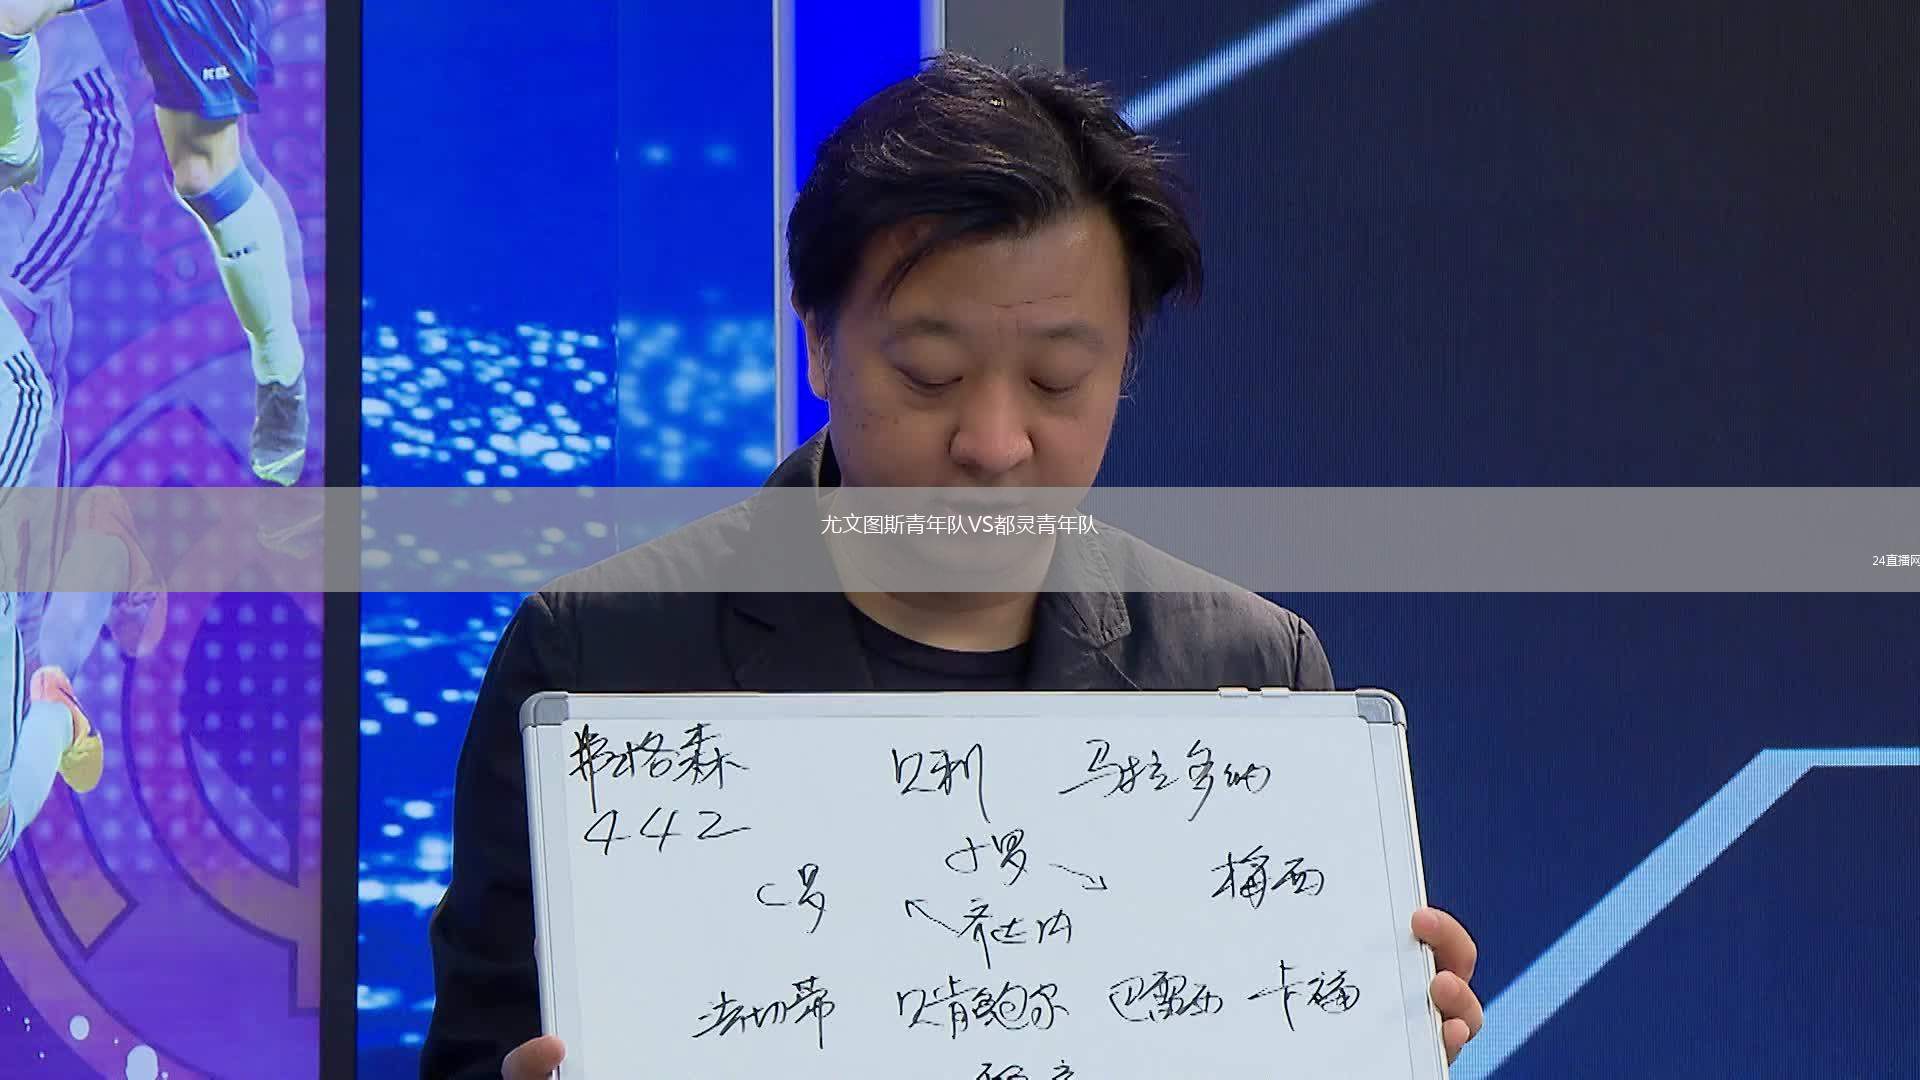 尤文图斯青年队VS都灵青年队
24直播网
弗格森 贝利 马拉多纳
442
小罗
C罗 梅西
齐达内
法切蒂 贝肯鲍尔 巴雷西 卡福